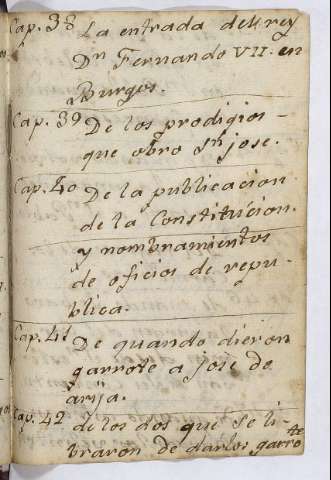 Cap. 38 La entrada del rey
Dn Fernando VII. en
Burgos.
Cap. 39 De los prodigios –
que obro Sn jose.
Cap. 40 De la publicacion
de la Constitucion.
y nombramientos
de oficios de repu-
blica.
Cap. 41 De quando dieron
garrote a jose de
arija.
Cap. 42 de los dos que se li-
braron de darlos garrote